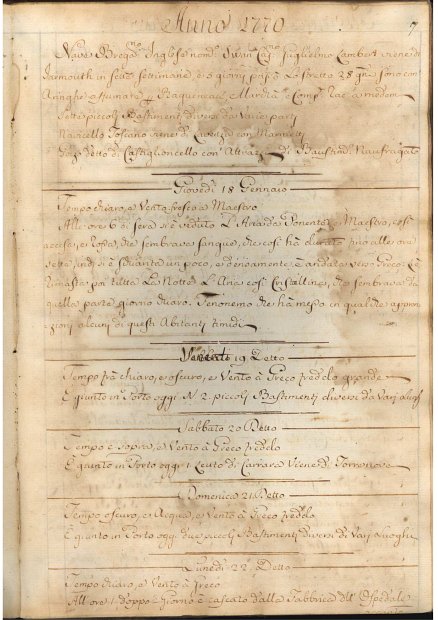 Anno 1770
7
Nave Bregno Inglese nomo Swan Capno Guglielmo Lambert viene di
Iarmouth in sette settimane, e giorni passò Lo stretto 28 sono con
Aringhe affumate p Raguencau, Murdia e Compi Rac. a medem.
Sette piccoli Bastimenti diversi da Varie parti
Navicello Toscano viene di Lavenza con Marmi
Gozo Detto di Castiglioncello con Attrazzi di Bastimo Naufragato
Giovedì 18 Gennaio
Tempo chiaro, e Vento fresco a Maestro
Alle ore 6 di sera si è veduto L'Aria da Ponente a Maestro, così
accesa, e rossa, che sembrava sangue, che così hà durato fino alle ore
sette, indi si è sparita un poco, e Scenamente è andata verso Greco ed è
rimasta poi tutta La Notte L'Aria così Cristallina, che sembrava da
quella parte giorno chiaro. Fenomeno che hà messo in qualche appren
zioni alcuni di questi Abitanti timidi
Venerdì 19 Detto
Tempo trà chiaro, e oscuro, e Vento à Greco grande
È giunto in Porto oggi N. 2. piccoli Bastimenti diversi da Varj Luoghi
Sabbato 20 Detto
Tempo e sopra, e Vento à Greco
È giunto in Porto oggi 1 Leuto di Carrara Viene di Torrenova
Domenica 21 Detto
Tempo oscuro, e Acqua, e Vento à Greco
È giunto in Porto oggi due piccoli Bastimenti diversi di Varj Luoghi
Lunedì 22 Detto
Tempo chiaro, e Vento à Greco
All'ore 1 doppo Giorno è cascato dalla Fabbrica dell' Ospedale